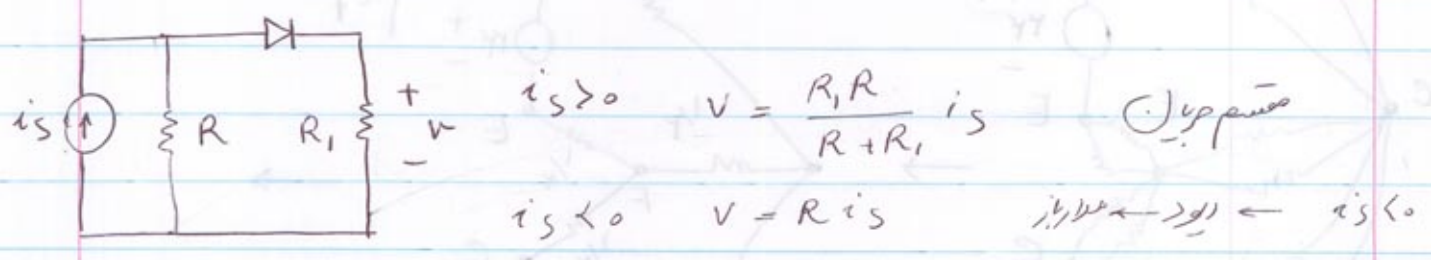 i_s R R₁ + v −
i_s > 0 v = R₁R / (R + R₁) i_s مقسم جریان
i_s < 0 v = R i_s i_s < 0 ← دیود ← مدار باز